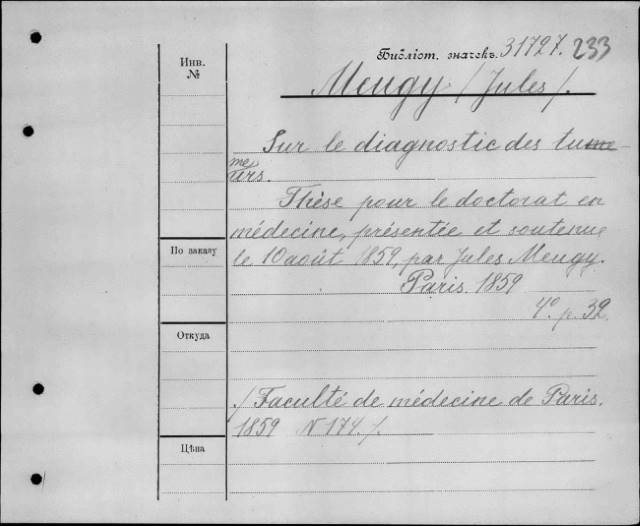 Библіот. значекъ. 31727. 233
Инв.
№
Meugy /Jules/.
Sur le diagnostic des tu-
meurs.
Thèse pour le doctorat en
médecine, présentée et soutenue
По заказу
le 10 août 1859, par Jules Meugy.
Paris 1859
4º. p. 32
Откуда
/Faculté de médecine de Paris.
1859 N 174./.
Цѣна